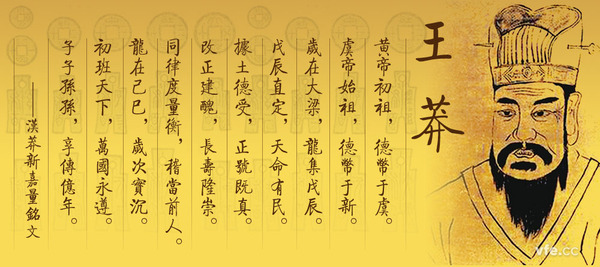 王莽
黃帝初祖，德幣于虞。
虞帝始祖，德幣于新。
歲在大梁，龍集戊辰。
戊辰直定，天命有民。
據土德受，正號既真。
改正建醜，長壽隆崇。
同律度量衡，稽當前人。
龍在己巳，歲次實沉。
初班天下，萬國永遵。
子子孫孫，享傳億年。
——漢莽新嘉量銘文
vfe.cc